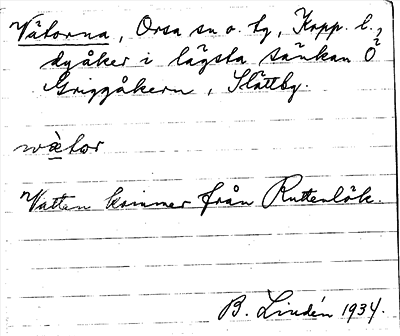 Vätorna, Orsa sn o. by, Kopp. l.,
dyåker i lägsta sänkan Ö
Griggåkern, Slättby.
wà̱tor
Vatten kommer från Ruttenlök.
B. Lindén 1934.